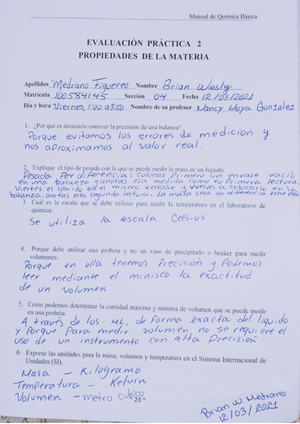 Manual de Química Básica
EVALUACIÓN PRÁCTICA 2
PROPIEDADES DE LA MATERIA
Apellidos Medrano Figuereo Nombre Brian Wesly
Matrícula 100554145 Sección 04 Fecha 12/03/2021
Día y hora Viernes, 1:00 a 3:50 Nombre de su profesor Nancy Moya Gonzalez
1. ¿Por qué es necesario conocer la precisión de una balanza?
Porque evitamos los errores de medición y
nos aproximamos al valor real.
2. Explique el tipo de pesada con la que se puede medir la masa de un líquido.
Pesada Por diferencia: Colocas Primero un envase vacío
en una balanza y anotas esa medida como tu Primera lectura.
Viertes el líquido en el mismo envase y vuelves a colocarlo en la
balanza, anotas esta segunda lectura. La masa será la diferencia entre
3. Cuál es la escala que se debe utilizar para medir la temperatura en el laboratorio de
química.
Se utiliza la escala Celsius
4. Porque debe utilizar una probeta y no un vaso de precipitado o beaker para medir
volúmenes.
Porque en ella tenemos Precisión y Podemos
leer mediante el minisco la exactitud
de un volumen
5. Cómo podemos determinar la cantidad maxima y minima de volumen que se puede medir
en una probeta.
A través de los ML, de Forma exacta del líquido
y Porque Para medir volumen no se requiere el
uso de un instrumento con alta Precisión
6. Exprese las unidades para la masa, volumen y temperatura en el Sistema Internacional de
Unidades (SI).
Masa - Kilogramo
Temperatura - Kelvin
Volumen - metro cubico
23
Brian W Medrano
12/03/2021